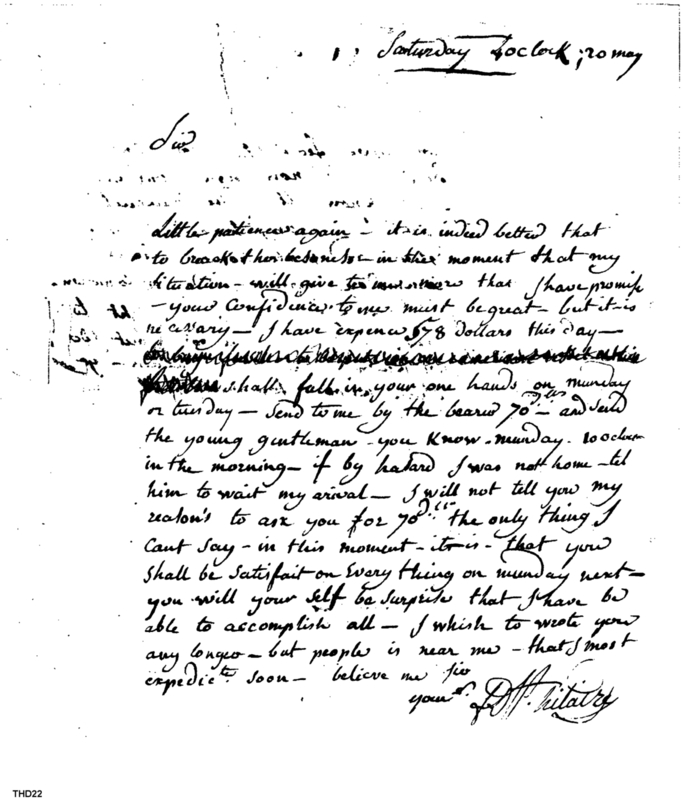 Saturday 4 oclock ; 20 may
Sir
Little patience again - it is indeed better that
to break ther besaness in ther moment that my
situation - will give to that I have promise
- your Confidence to me must be great - but it is
necessary - I have expence 578 dollars this day -
shall fall in your one hands on munday
or tuesday - send to me by the bearer 70 dlls - and send
the young gentleman - you Know - munday - 10 oclock
in the morning - if by hazard I was not home - tel
him to wait my arival - I will not tell you my
reason's to ask you for 70 d.lls the only thing I
Cant say - in this moment - it is - that you
shall be satisfait on Every thing on munday next -
you will your self be surprise that I have be
able to accomplish all - I whish to wrote you
any longer - but people is near me - that I most
expedict soon - believe me sir
your
THD22